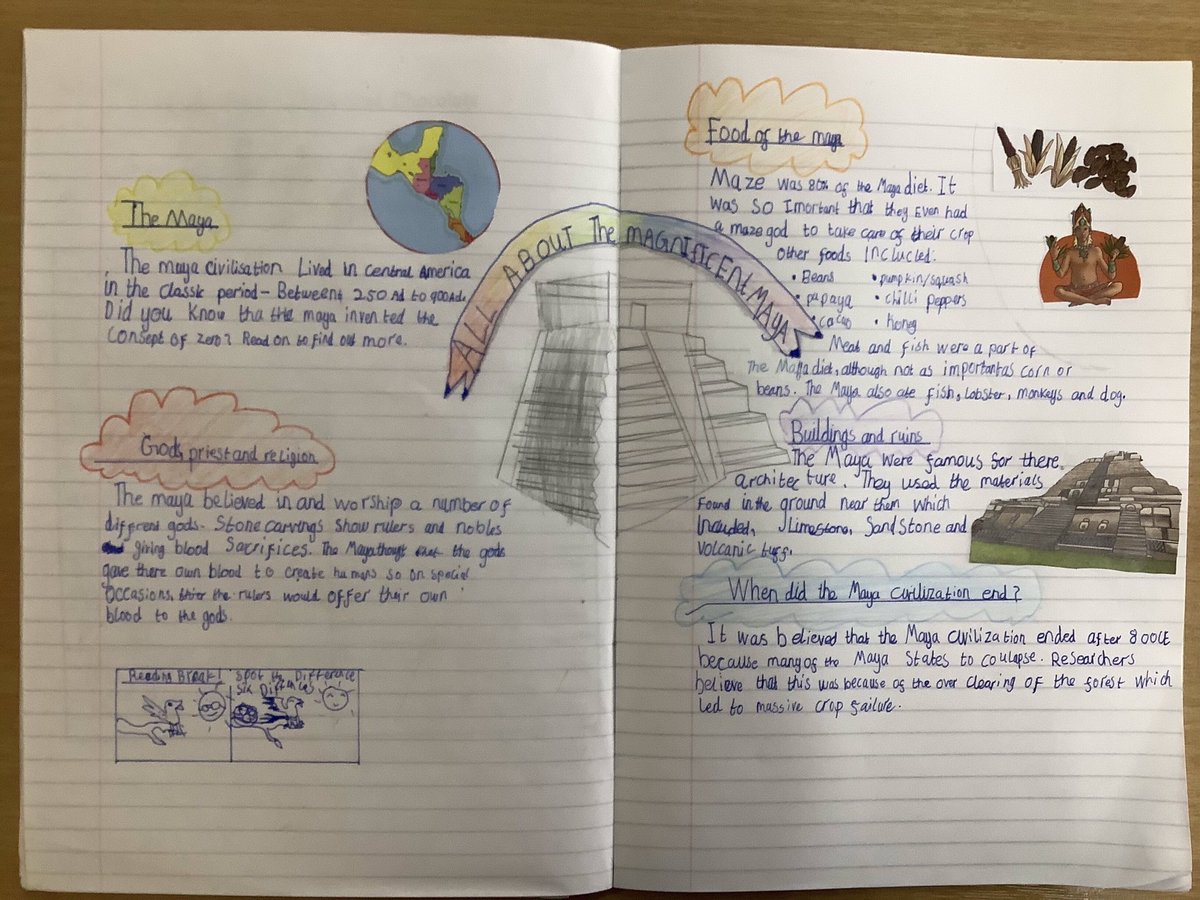 ALL ABOUT The MAGNIFICENT MAYA
The Maya
The maya civilisation Lived in central America
in the classic period - Between 250 Ad to 900Ad.
Did you know tha the maya invented the
consept of zero? Read on to find out more.
Gods, priest and religion
The maya believed in and worship a number of
different gods. Stone carvings show rulers and nobles
giving blood Sacrifices. The Maya thought that the gods
gave there own blood to create humans so on special
occasions, the rulers would offer their own
blood to the gods.
Reading Break!
Spot the Difference
Six Diffences
Food of the maya
Maze was 80% of the Maya diet. It
was so Imortant that they Even had
a maze god to take care of their crop
other foods Included:
• Beans • pumpkin/squash
• papaya • chilli peppers
• cacao • honey
Meat and fish were a part of
The Maya diet, although not as important as corn or
beans. The Maya also ate fish, lobster, monkeys and dog.
Buildings and ruins
The Maya were famous for there
architecture. They used the materials
Found in the ground near them which
Included, Limestone, Sandstone and
volcanic tuff.
When did the Maya civilization end?
It was believed that the Maya civilization ended after 800CE
because many of the Maya States to coulapse. Researchers
believe that this was because of the over clearing of the forest which
led to massive crop failure.